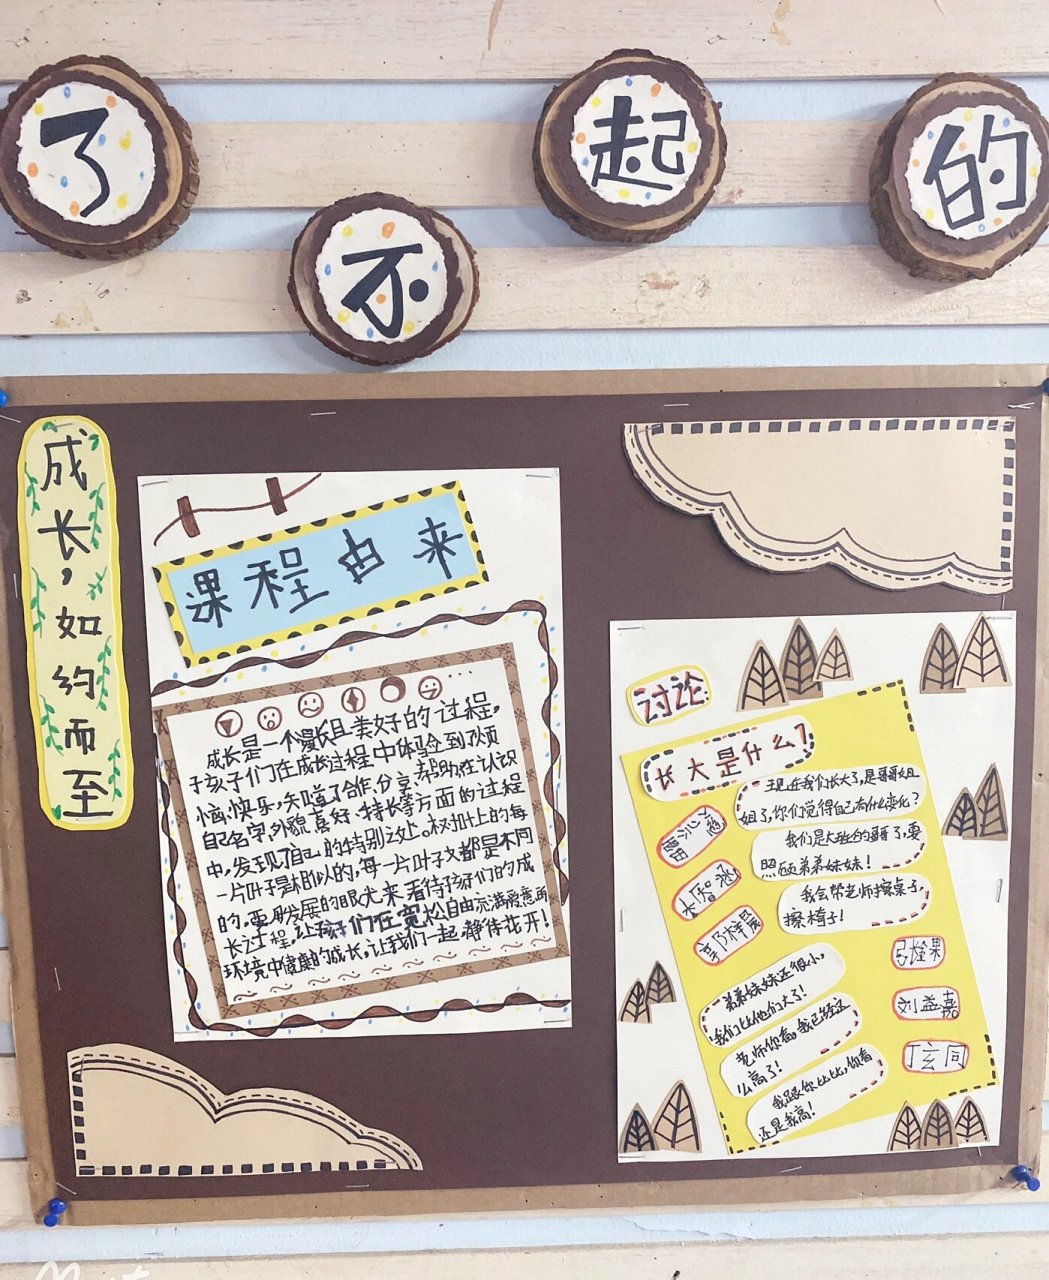 了不起的
成长，如约而至
课程由来
成长是一个漫长且美好的过程，
于孩子们在成长过程中体验到了烦
恼、快乐，知道了合作、分享、帮助，在认识
自己名字、外貌、喜好、特长等方面的过程
中，发现了自己的特别之处。树叶上的每
一片叶子是相似的，每一片叶子又都是不同
的，要用发展的眼光来看待孩子们的成
长过程，让孩子们在宽松自由充满爱意的
环境中健康的成长，让我们一起，静待花开！
讨论
长大是什么？
现在我们长大了，是哥哥姐
姐了，你们觉得自己有什么变化？
我们是大班的哥哥了，要
照顾弟弟妹妹！
我会帮老师擦桌子，
擦椅子！
弟弟妹妹还很小，
我们比他们大了！
老师你看，我已经这
么高了！
我跟你比比，你看
还是我高！
刘益嘉
丁玄同